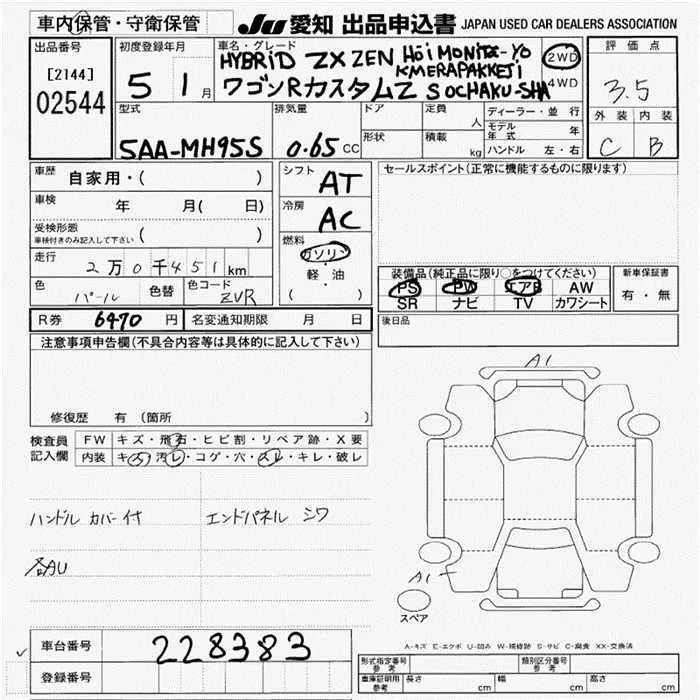 車内保管・守衛保管
JU 愛知 出品申込書 JAPAN USED CAR DEALERS ASSOCIATION
出品番号
[2144]
02544
初度登録年月
5 1 月
車名・グレード
HYBRiD ZX ZEN HOiMONiTA-YO
KMERAPAKKEJi
ワゴンRカスタムZ SOCHAKU-SHA
2WD
4WD
評価点
3.5
外装 内装
C B
型式
5AA-MH95S
排気量
0.65 CC
ドア
形状
定員
人
積載
kg
ディーラー・並行
モデル年式 年
ハンドル 左・右
車歴 自家用・( )
車検 年 月( 日)
受検形態
車検付きのみ記入して下さい ( )
走行 2万0千451km
色 パール 色替 色コード ZVR
シフト AT
冷房 AC
燃料
ガソリン
・
軽・油
( )
セールスポイント(正常に機能するものに限ります)
装備品(純正品に限り○をつけてください)
PS PW エアB AW
SR ナビ TV カワシート
新車保証書
有・無
R券 6470 円 名変通知期限 月 日
後日品
注意事項申告欄(不具合内容等は具体的に記入して下さい)
修復歴 有 (箇所 )
検査員
記入欄
FW キズ・飛石・ヒビ割・リペア跡・X要
内装 キズ・汚レ・コゲ・穴・スレ・キレ・破レ
ハンドル カバー付 エンドパネル シワ
各AU
A1
A1
スペア
A-キズ E-エクボ U-凹み W-補修跡 S-サビ C-腐食 XX-交換済
車台番号 228383
登録番号
形式指定番号
参考
類別区分番号
参考
車庫証明用
参考
長さ cm 幅 cm 高さ cm